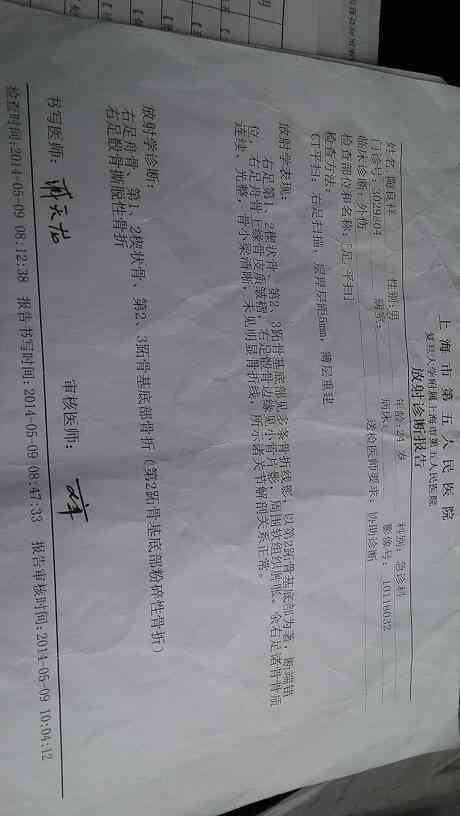 上海市第五人民医院
复旦大学附属上海市第五人民医院
放射诊断报告
性别:男 年龄: 岁 科别: 急诊科
门诊号:5029804 病室: 病床: 影像号: 10118032
临床诊断:外伤 送检医师要求: 协助诊断
检查部位和名称: 足 平扫
检查方法:
CT平扫: 右足扫描, 层厚层距5mm, 薄层重建
放射学表现:
右足第1、2楔状骨、第2、3跖骨基底部见多条骨折线影, 以第2跖骨基底部为著, 断端错
位, 右足舟骨上缘骨皮质皱褶, 右足骰骨边缘见小骨片影, 周围软组织肿胀。余右足诸骨骨质
连续、光整, 骨小梁清晰, 未见明显骨折线, 所示诸关节解剖关系正常。
放射学诊断:
右足舟骨、第1、2楔状骨、第2、3跖骨基底部骨折 (第2跖骨基底部粉碎性骨折)
右足骰骨撕脱性骨折
书写医师: 审核医师:
检查时间:2014-05-09 08:12:38 报告书写时间: 2014-05-09 08:47:33 报告审核时间: 2014-05-09 10:04:12